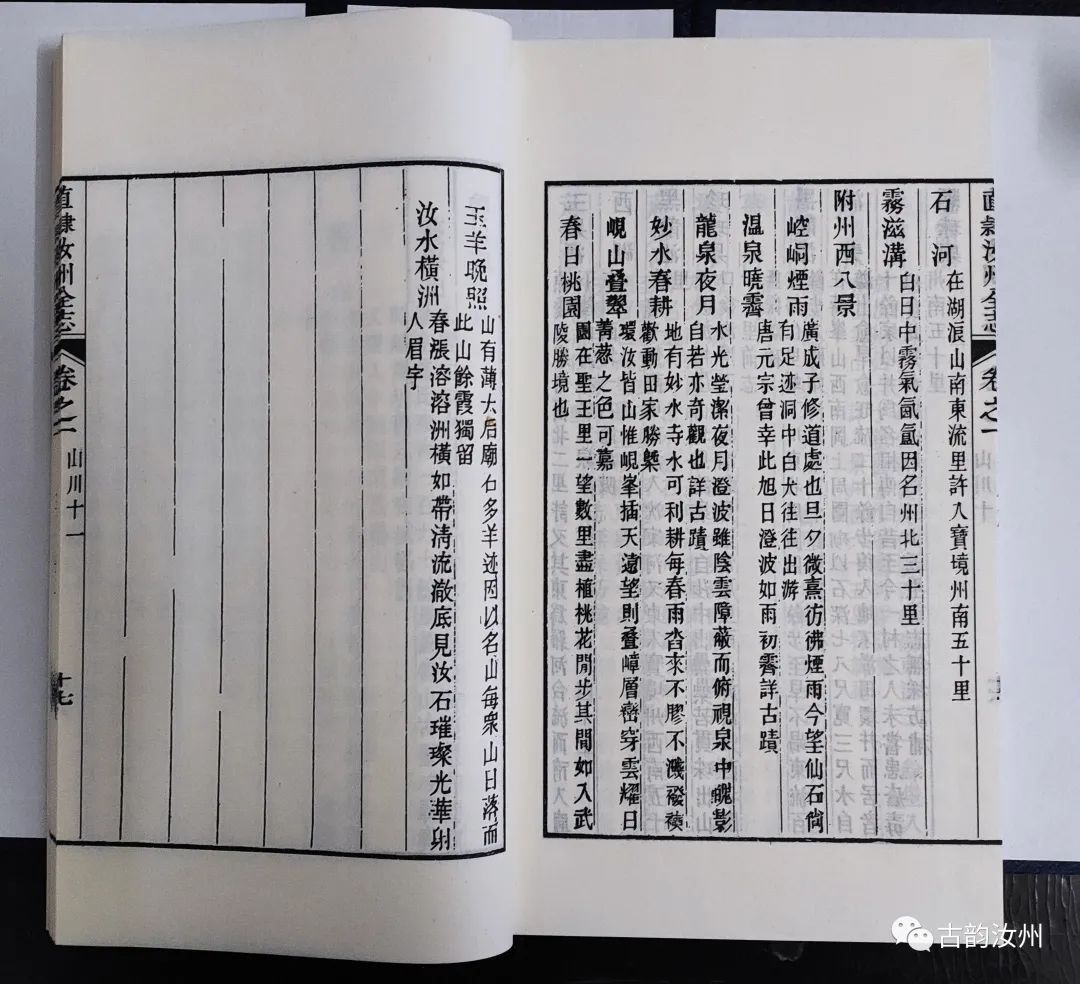 直隸汝州全志 卷之一
石河 在湖浪山南東流里許入寶境州南五十里
霧滋溝 白日中霧氣氤氳因名州北三十里
附州西八景
崆峒煙雨 廣成子修道處也旦夕微熹彷彿煙雨今望仙石尙
有足迹洞中白犬往往出游
温泉曉霽 唐元宗曾幸此旭日澄波如雨初霽詳古蹟
龍泉夜月 水光瑩潔夜月澄波雖陰雲障蔽而俯視泉中蟾影
自若亦奇觀也詳古蹟
妙水春耕 地有妙水寺水可利耕每春雨沓來不膠不濺襏襫
歡動田家勝槩
峴山叠翠 環汝皆山惟峴峯插天遠望則叠嶂層巒穿雲耀日
菁葱之色可慕
春日桃園 園在聖王里一望數里盡植桃花閒步其間如入武
陵勝境也
玉羊晚照 山有薄太后廟石多羊迹因以名山每衆山日落而
此山餘霞獨留
汝水橫洲 春漲溶溶洲橫如帶淸流澈底見汝石璀璨光華射
人眉宇
直隸汝州全志 卷之一 山川十一 十七
古韵汝州